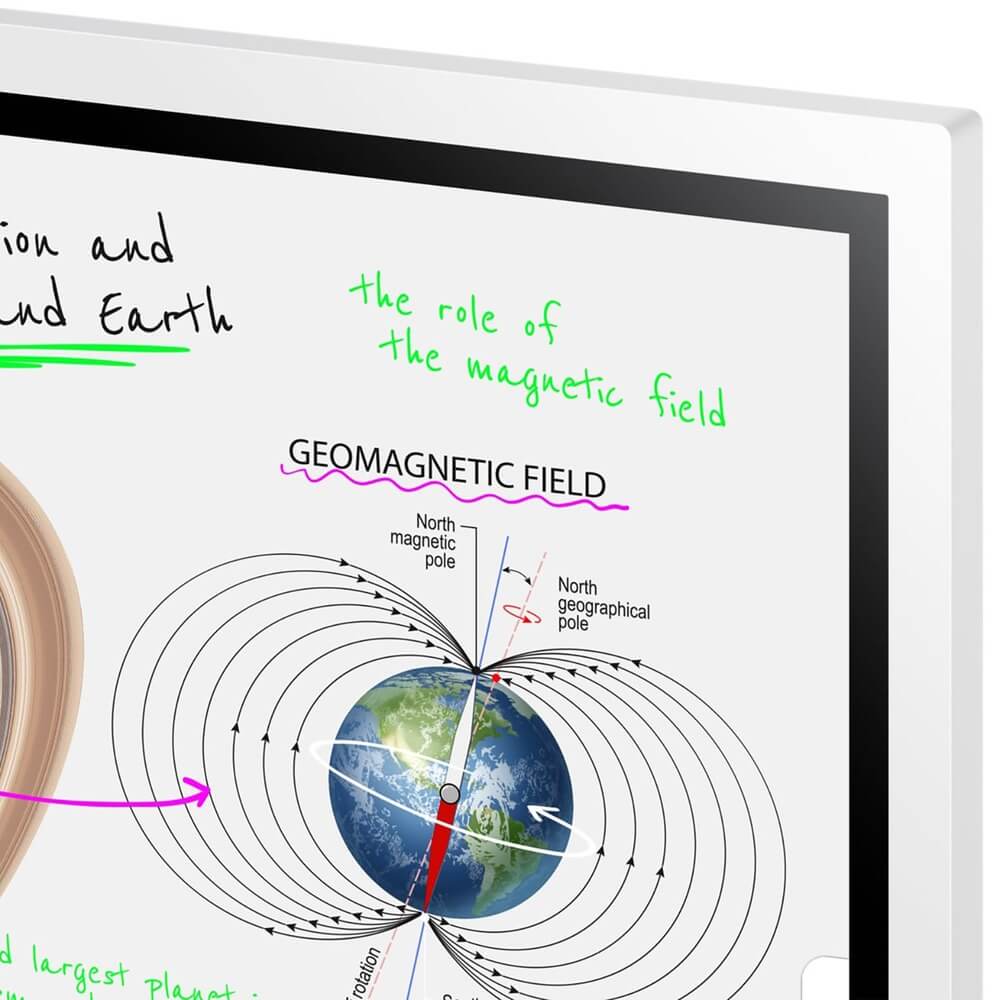 and
and Earth
the role of
the magnetic field
GEOMAGNETIC FIELD
North
magnetic
pole
North
geographical
pole
rotation
largest planet